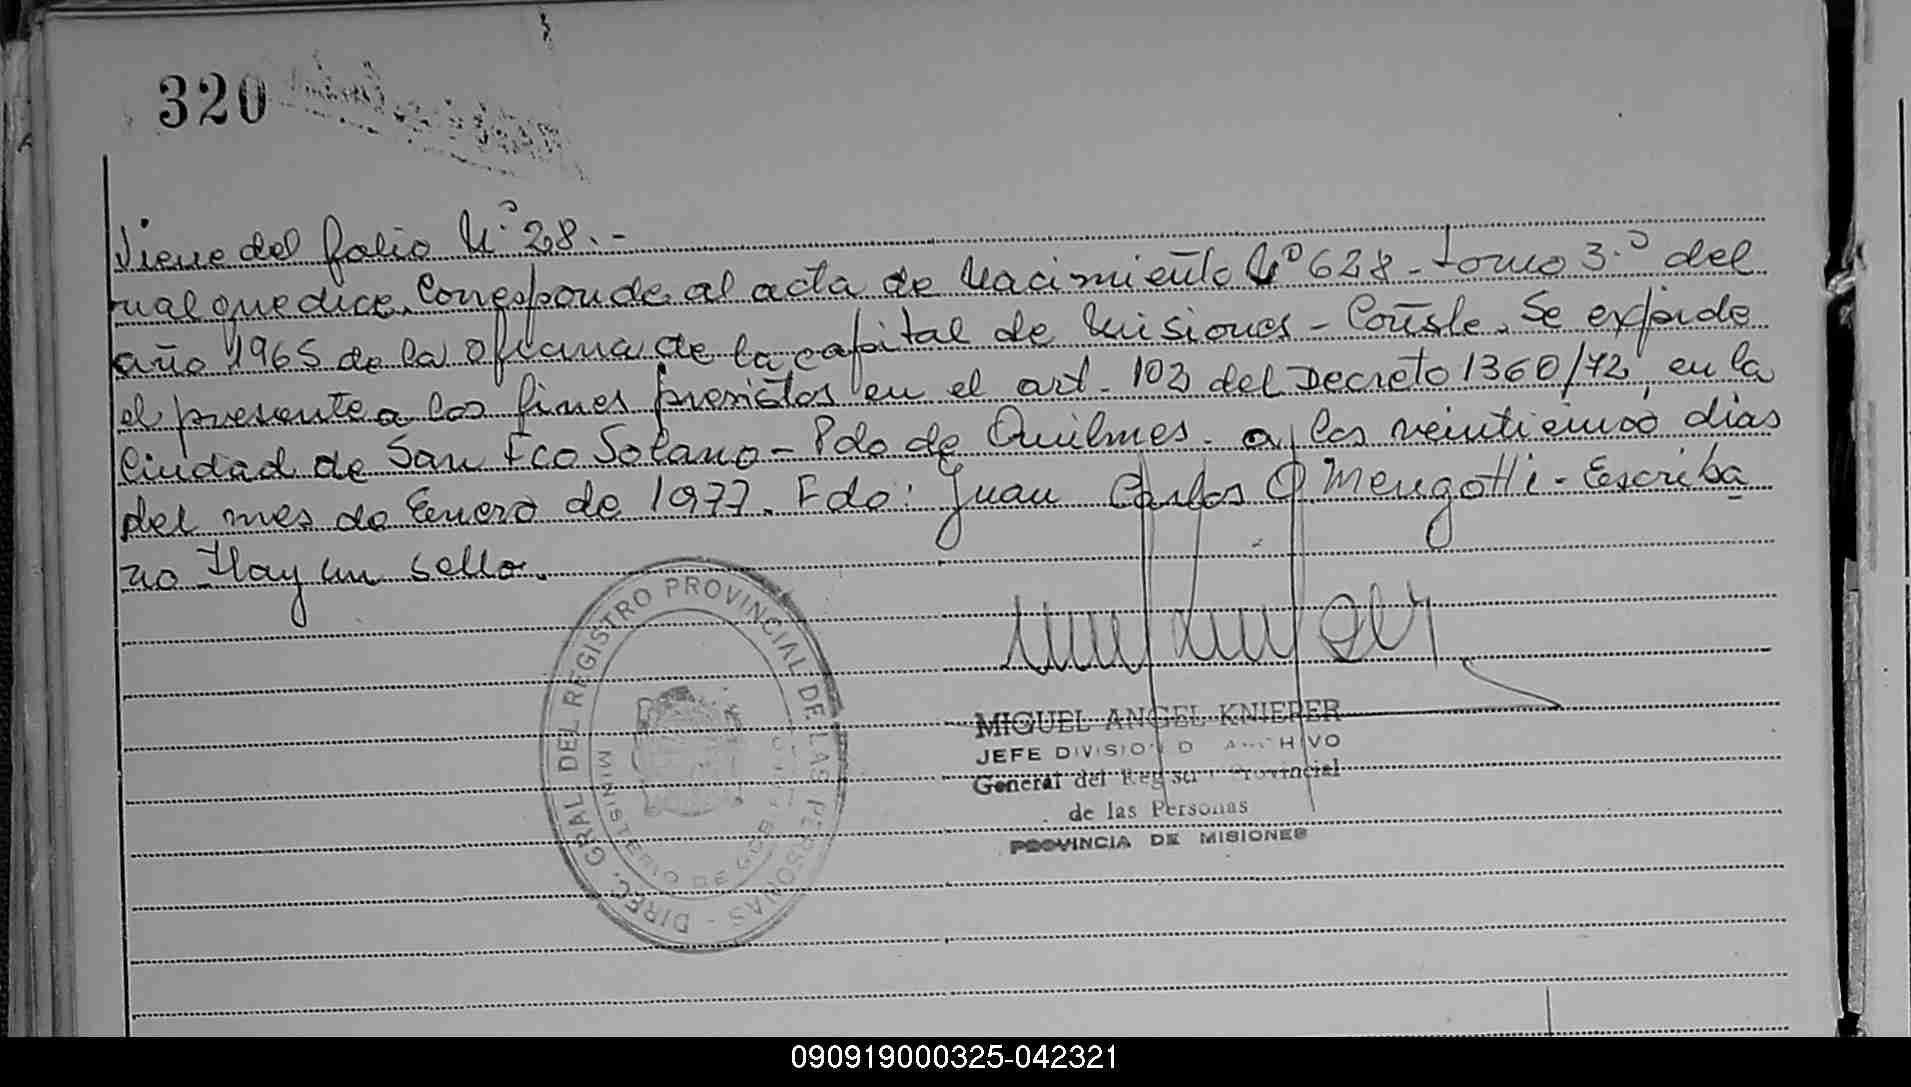 320
Viene del folio Nº 28.-
rual que dice. Corresponde al acta de Nacimiento Nº 628 - tomo 3.º del
año 1965 de la oficina de la capital de Misiones - Conste. Se expide
el presente a los fines previstos en el art. 102 del Decreto 1360/72, en la
Ciudad de San Fco Solano - Pdo de Quilmes. a los veinticinco días
del mes de Enero de 1977. Fdo: Juan Carlos O Mengotti - Escriba
no Hay un sello.
DIREC. GRAL DEL REGISTRO PROVINCIAL DE LAS PERSONAS -
MINISTERIO DE GOB
MIGUEL ANGEL KNIEPER
JEFE DIVISION ARCHIVO
General del Registro Provincial
de las Personas
PROVINCIA DE MISIONES
090919000325-042321